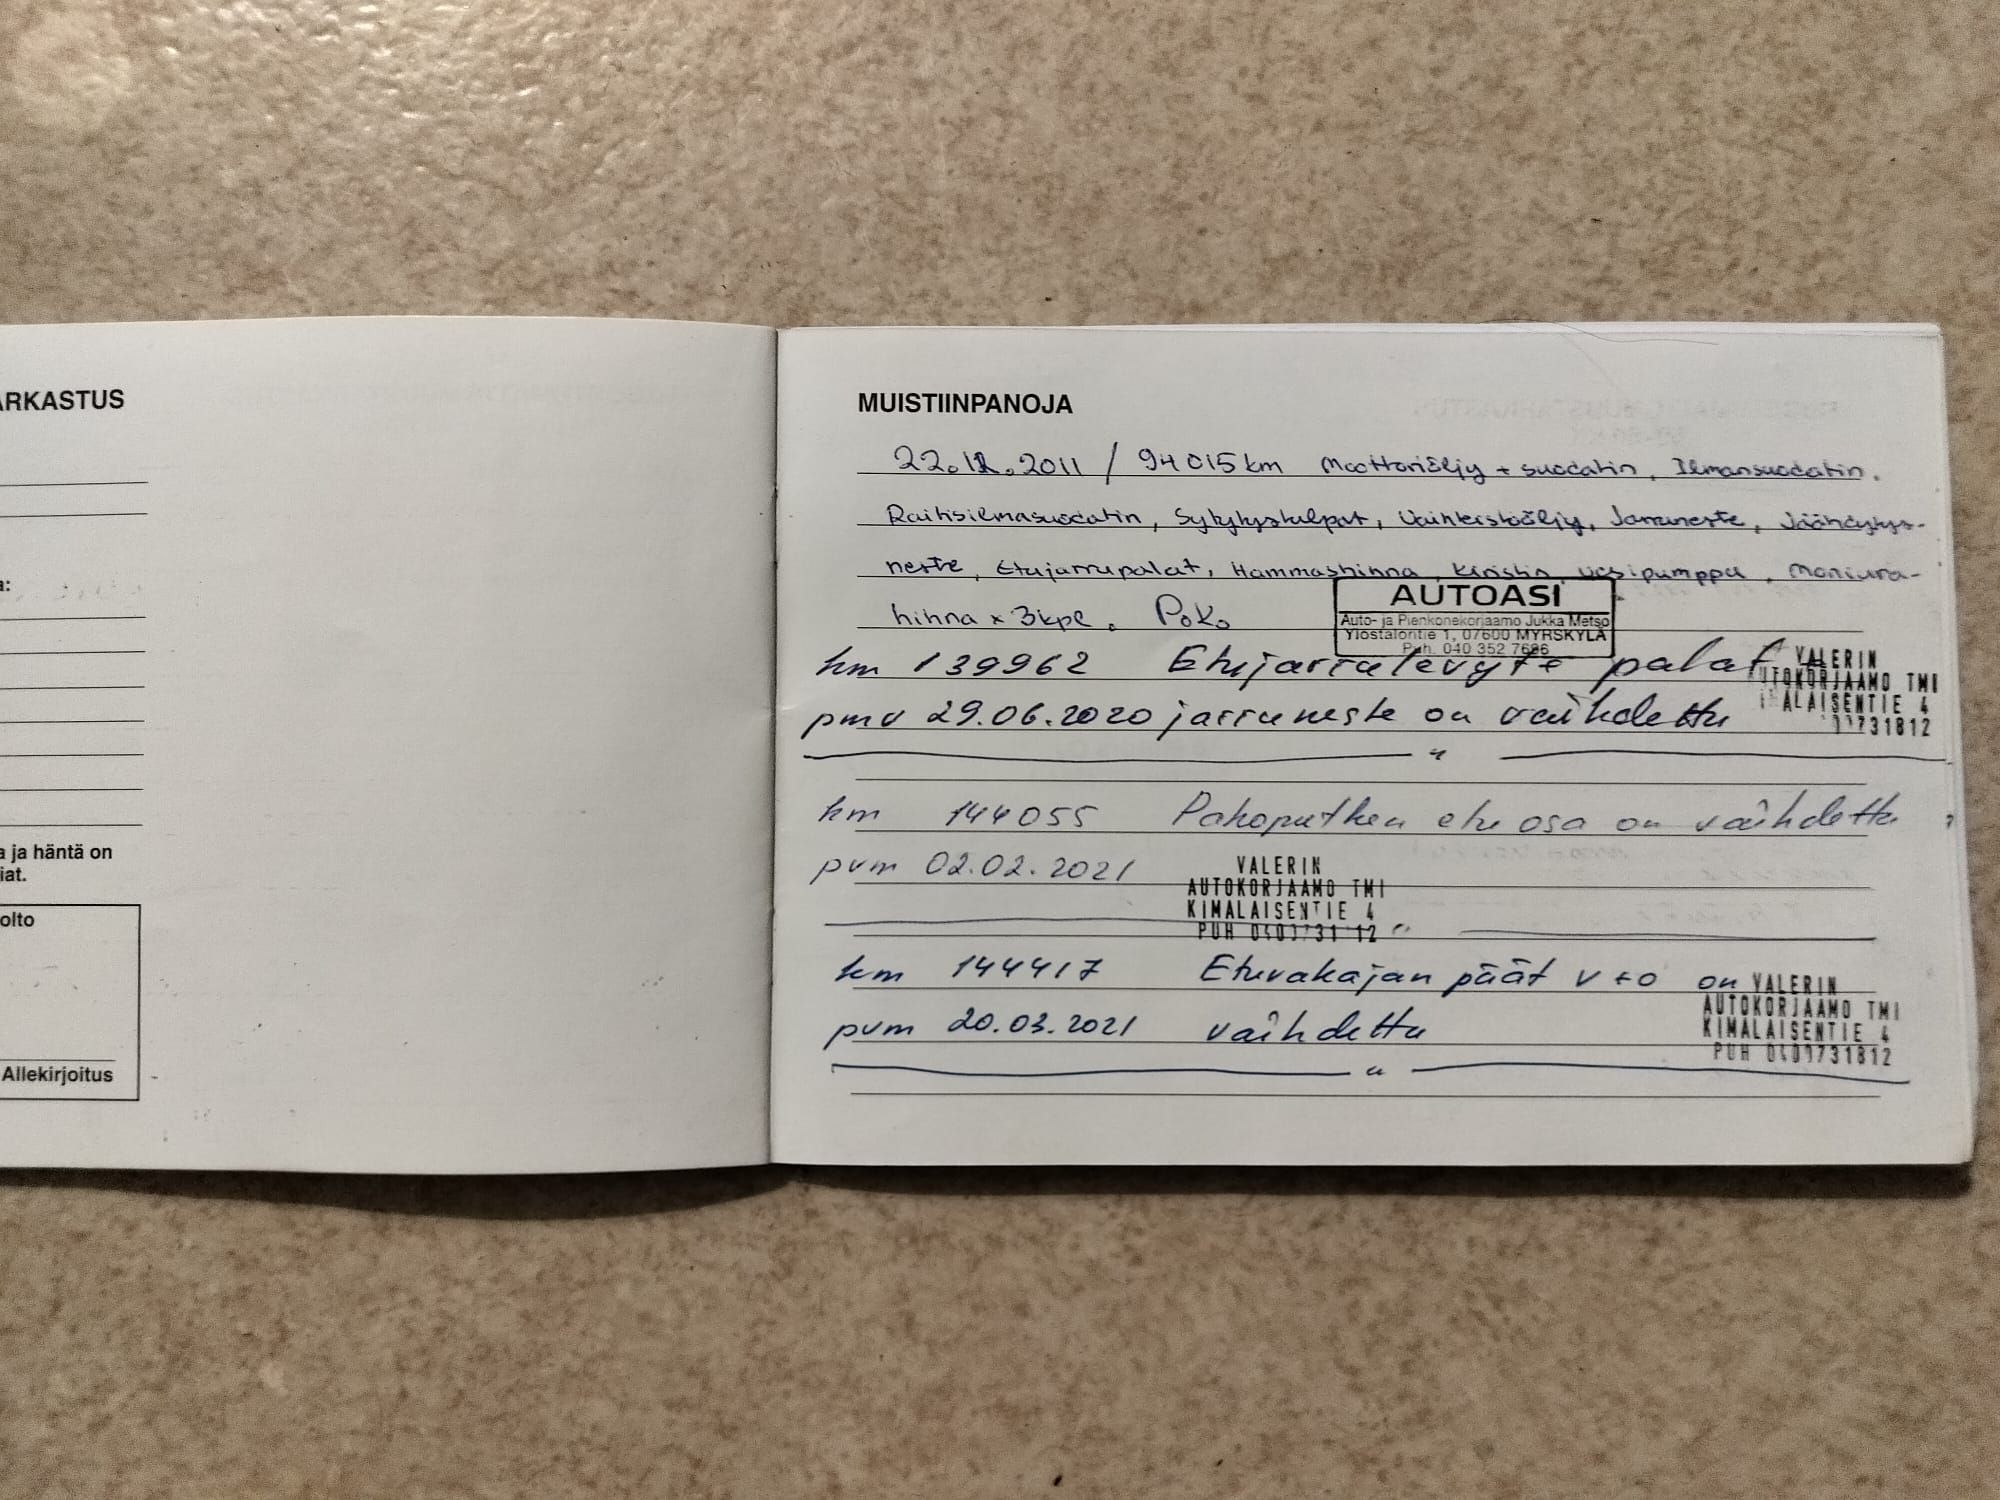 ARKASTUS
a ja häntä on
iat.
olto
Allekirjoitus
MUISTIINPANOJA
22.12.2011 / 94015km Moottoriöljy + suodatin, Ilmansuodatin,
Raitisilmasuodatin, Sytytystulpat, Vaihteistoöljy, Jarruneste, Jäähdytys-
neste, Etujarrupalat, Hammashihna, Kiristin, vesipumppu, moniura-
hihna x 3kpl. PoKo
AUTOASI
Auto- ja Pienkonekorjaamo Jukka Metso
Ylöstalontie 1, 07600 MYRSKYLÄ
Puh. 040 352 7686
km 139962 Etujarrulevyt+ palat
pmv 29.06.2020 jarruneste on vaihdettu
VALERIN
UTOKORJAAMO TMI
ALAISENTIE 4
731812
km 144055 Pakoputken etu osa on vaihdettu
pvm 02.02.2021
VALERIN
AUTOKORJAAMO TMI
KIMALAISENTIE 4
PUH 0400731 12
km 144417 Etuvakajan päät v+o on
pvm 20.03.2021 vaihdettu
VALERIN
AUTOKORJAAMO TMI
KIMALAISENTIE 4
PUH 0400731812